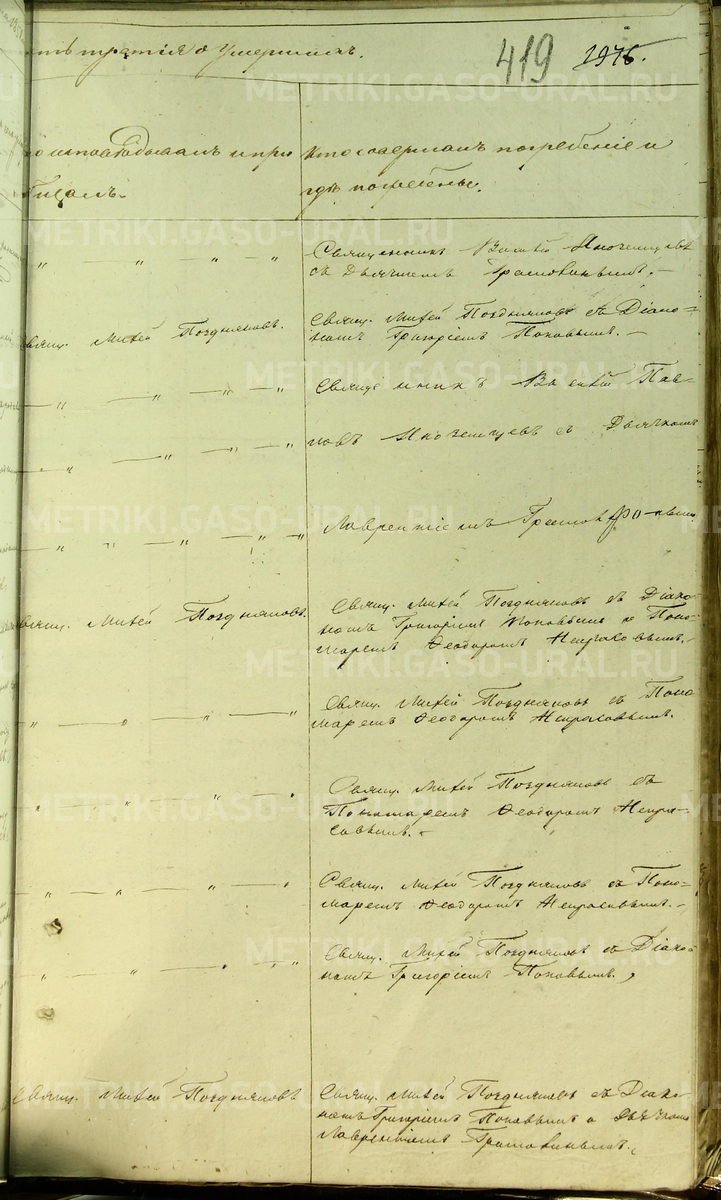 третія о умершихъ. 419 1976.
исповѣдывалъ и прі
Кто совершалъ погребеніе и
гдѣ погребены.
Священникъ Василій Иноземцевъ
съ Дьячкомъ
Свящ. Матѳей Поздняковъ.
Свящ. Матѳей Поздняковъ съ Діако=
номъ Григоріемъ Поповымъ. —
Священникъ Василій Пав-
ловъ Иноземцевъ съ Дьячкомъ
Лаврентіемъ
Свящ. Матѳей Поздняковъ.
Свящ. Матѳей Поздняковъ съ Діако-
номъ Григоріемъ Поповымъ и Поно-
маремъ Ѳеодоромъ Некрасовымъ. —
Свящ. Матѳей Поздняковъ съ Поно
маремъ Ѳеодоромъ Некрасовымъ.
Свящ. Матѳей Поздняковъ съ
Пономаремъ Ѳеодоромъ Некра-
совымъ. —
Свящ. Матѳей Поздняковъ съ Поно=
маремъ Ѳеодоромъ Некрасовымъ. —
Свящ. Матѳей Поздняковъ съ Діако
номъ Григоріемъ Поповымъ.
Свящ. Матѳей Поздняковъ
Свящ. Матѳей Поздняковъ съ Діако-
номъ Григоріемъ Поповымъ и Дьячкомъ
Лаврентіемъ
METRIKI.GASO-URAL.RU